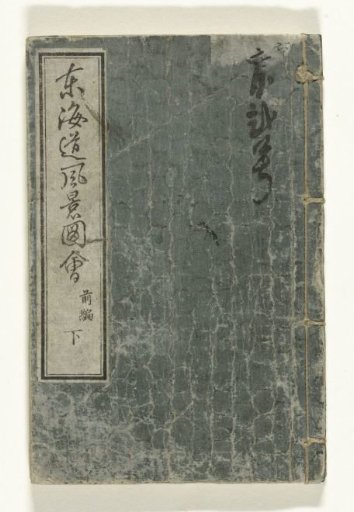 东海道風景圖會
前編
下